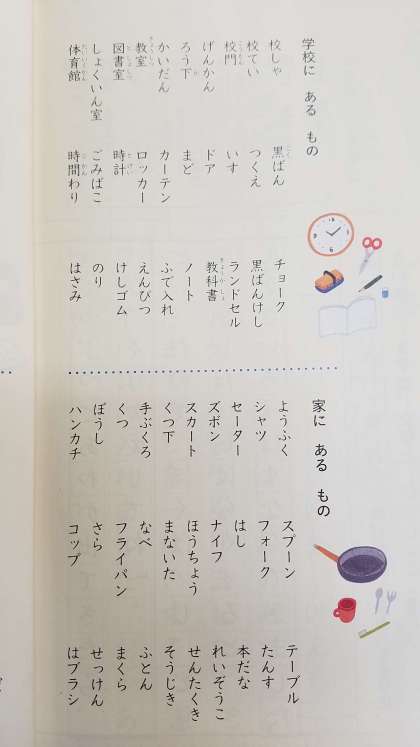 学校に ある もの
校しゃ
校てい
校門
げんかん
ろう下
かいだん
教室
図書室
しょくいん室
体育館
黒ばん
つくえ
いす
ドア
まど
カーテン
ロッカー
時計
ごみばこ
時間わり
チョーク
黒ばんけし
ランドセル
教科書
ノート
ふで入れ
えんぴつ
けしゴム
のり
はさみ
家に ある もの
ようふく
シャツ
セーター
ズボン
スカート
くつ下
手ぶくろ
くつ
ぼうし
ハンカチ
スプーン
フォーク
はし
ナイフ
ほうちょう
まないた
なべ
フライパン
さら
コップ
テーブル
たんす
本だな
れいぞうこ
せんたくき
そうじき
ふとん
まくら
せっけん
はブラシ